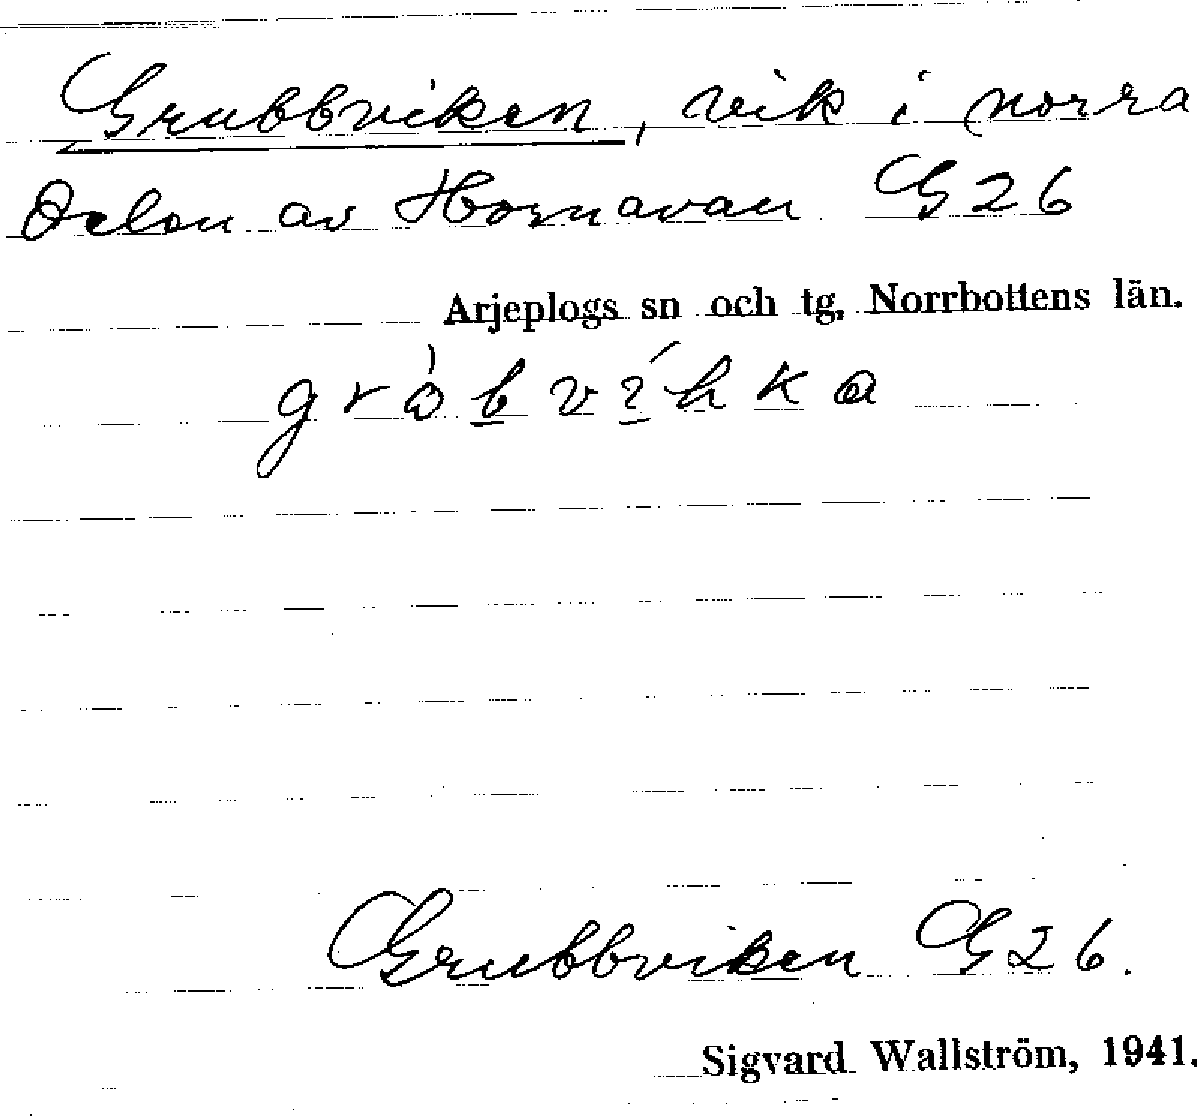 Grubbviken, vik i norra
delen av Hornavan G26
Arjeplogs sn och tg, Norrbottens län.
Grubbviken G26.
Sigvard Wallström, 1941.